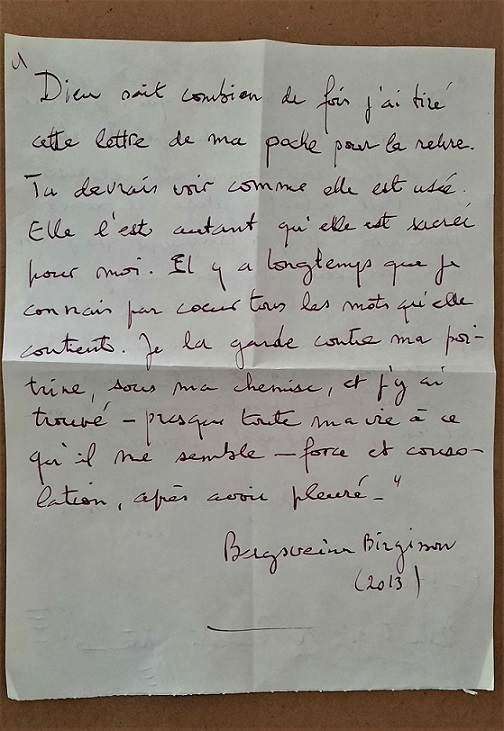 "
Dieu sait combien de fois j'ai tiré
cette lettre de ma poche pour la relire.
Tu devrais voir comme elle est usée.
Elle l'est autant qu'elle est sacrée
pour moi. Il y a longtemps que je
connais par coeur tous les mots qu'elle
contient. Je la garde contre ma poi-
trine, sous ma chemise, et j'y ai
trouvé – presque toute ma vie à ce
qu'il me semble – force et conso-
lation, après avoir pleuré – "
Bergsveinn Birgisson
(2013)